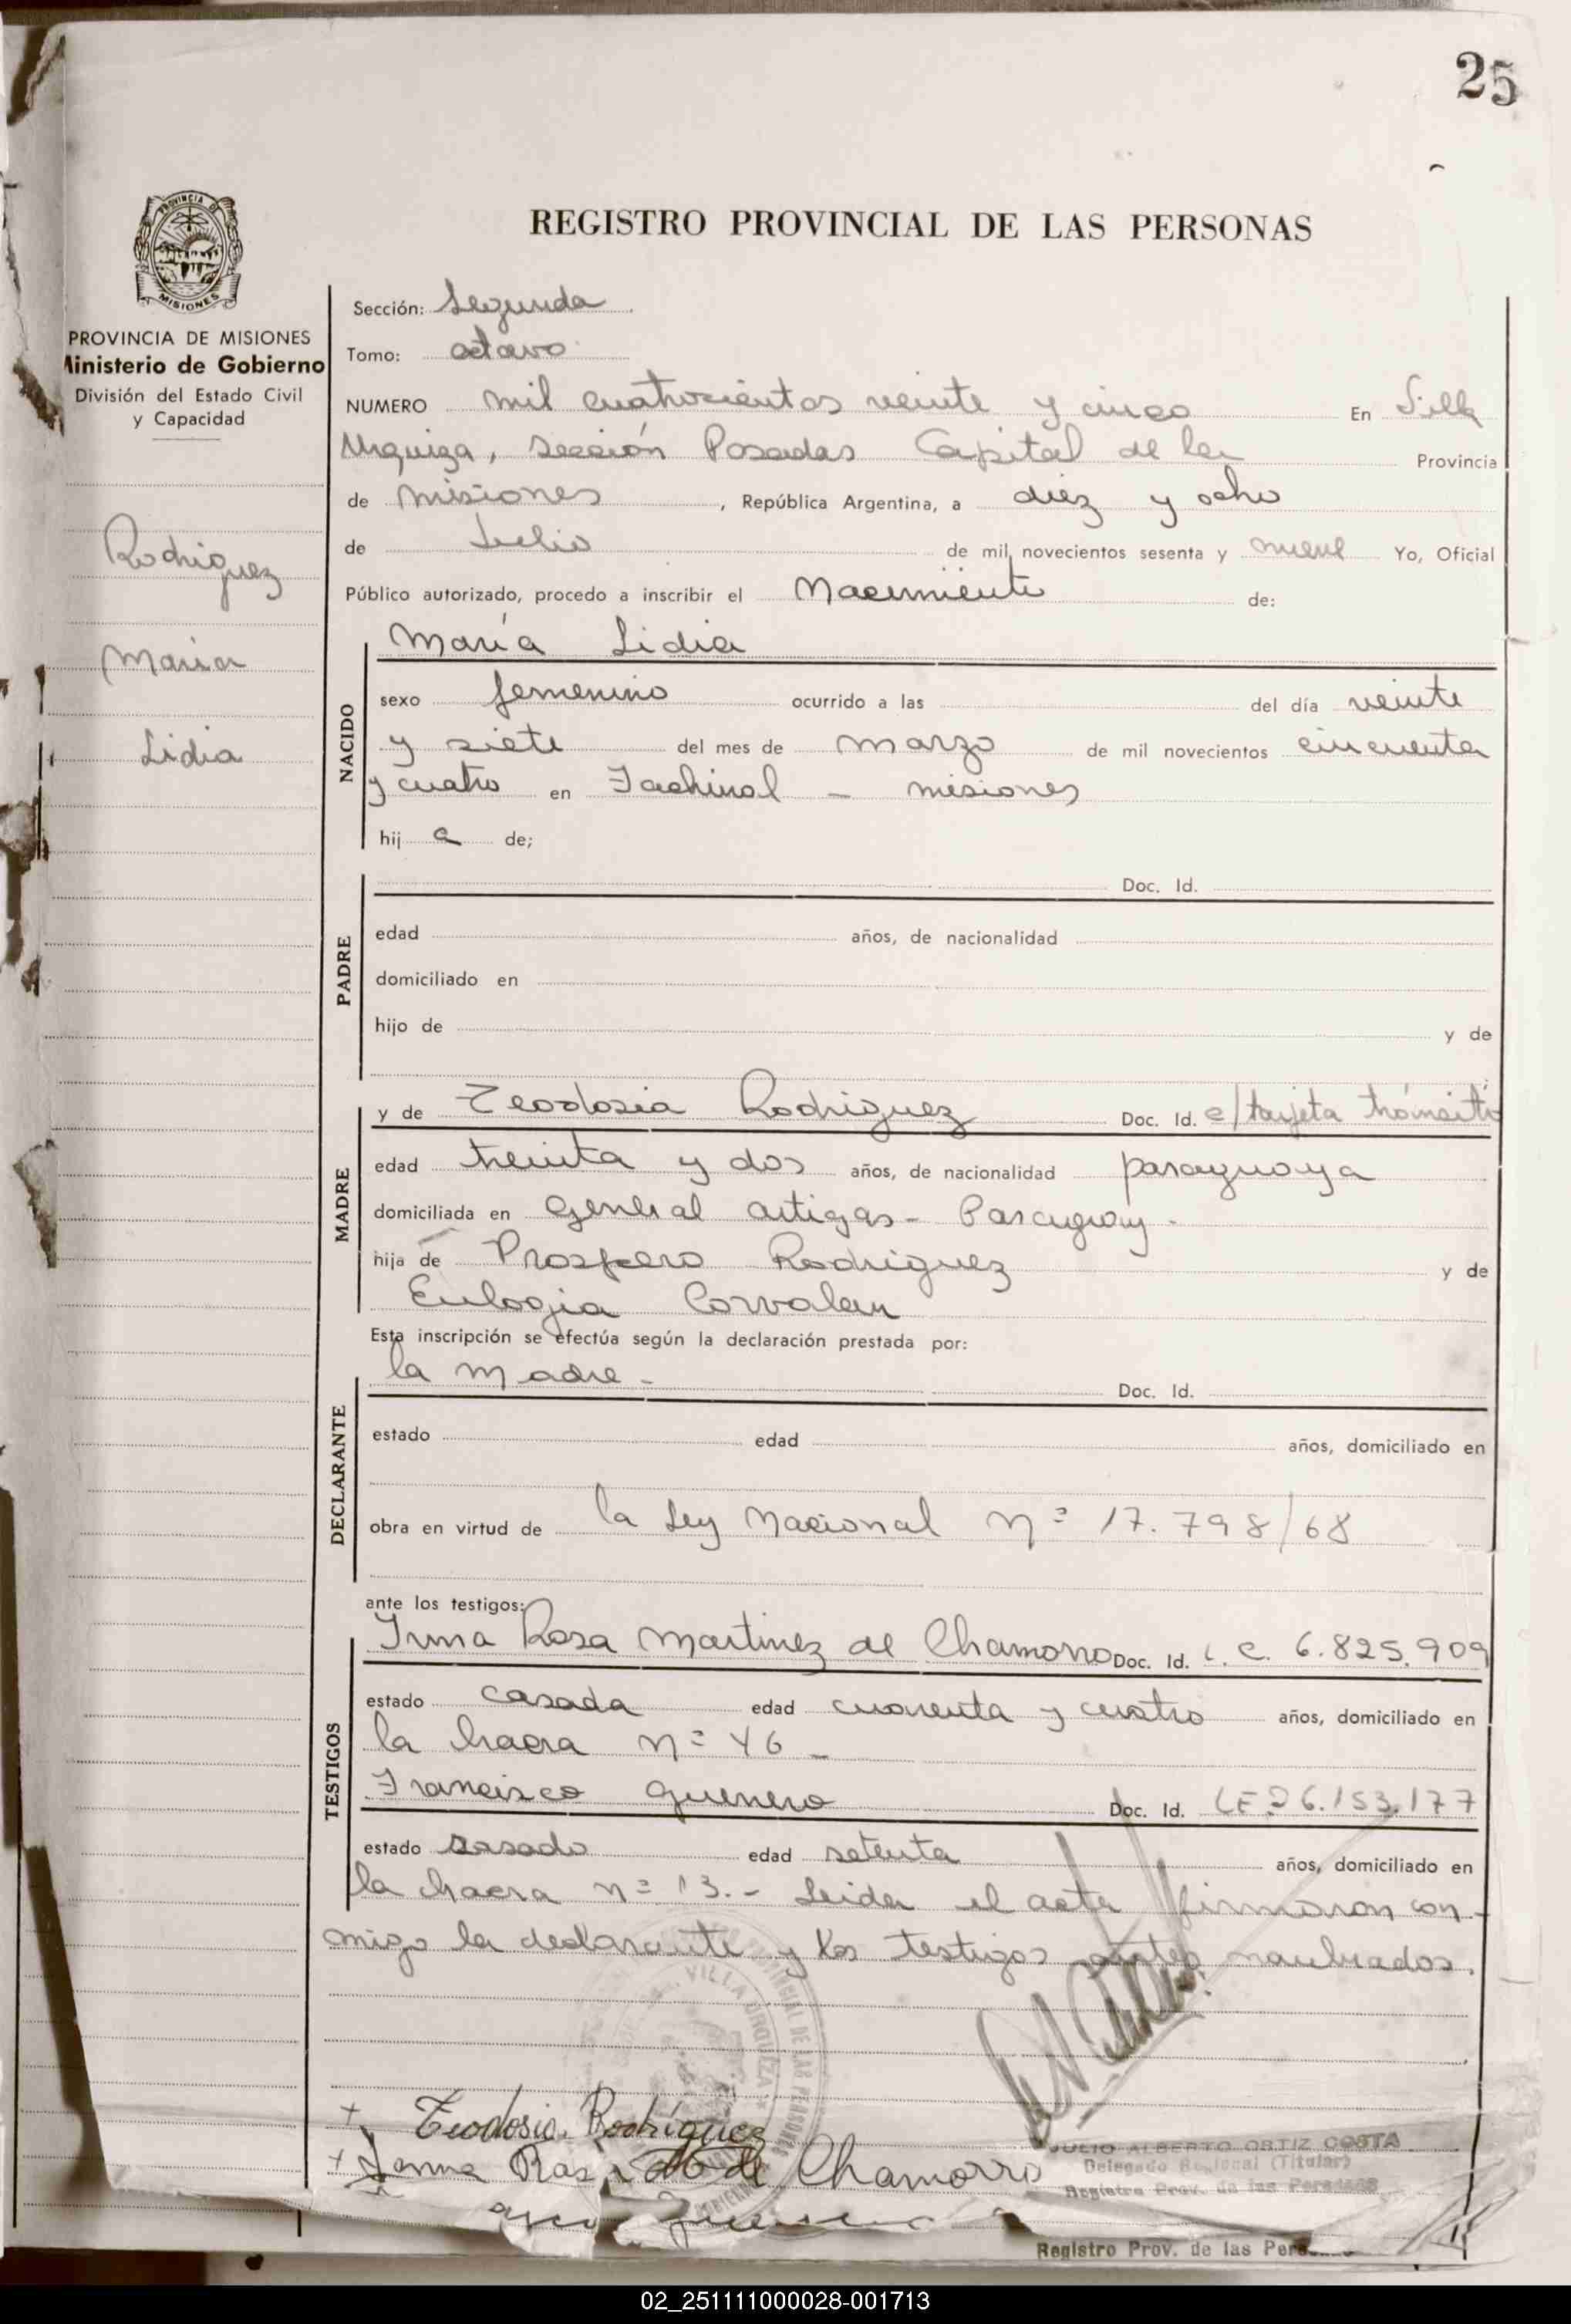 25
REGISTRO PROVINCIAL DE LAS PERSONAS
PROVINCIA DE MISIONES
PROVINCIA DE MISIONES
Ministerio de Gobierno
División del Estado Civil
y Capacidad
Rodriguez
Maria
Lidia
Sección: Segunda
Tomo: octavo
NUMERO mil cuatrocientos veinte y cinco En Villa
Urquiza, sección Posadas Capital de la Provincia
de Misiones, República Argentina, a diez y ocho
de Julio de mil novecientos sesenta y nueve Yo, Oficial
Público autorizado, procedo a inscribir el Nacimiento de:
NACIDO
María Lidia
sexo femenino ocurrido a las del día veinte
y siete del mes de marzo de mil novecientos cincuenta
y cuatro en Fachinal - misiones
hij a de;
PADRE
Doc. Id.
edad años, de nacionalidad
domiciliado en
hijo de y de
MADRE
y de Teodosia Rodriguez Doc. Id. c/tarjeta tránsito
edad treinta y dos años, de nacionalidad paraguaya
domiciliada en General Artigas - Paraguay -
hija de Prospero Rodriguez y de
Eulogia Corvalan
Esta inscripción se efectúa según la declaración prestada por:
DECLARANTE
la madre - Doc. Id.
estado edad años, domiciliado en
obra en virtud de la Ley Nacional nº 17.798/68
ante los testigos:
TESTIGOS
Irma Rosa Martinez de Chamorro Doc. Id. L. C. 6.825.909
estado casada edad cuarenta y cuatro años, domiciliado en
la chacra nº 46 -
Francisco Guerrero Doc. Id. LE 26.153.177
estado casado edad setenta años, domiciliado en
la chacra nº 13.- Leida el acta firmaron con-
migo la declarante y los testigos antes nombrados.
VILLA URQUIZA
PROVINCIAL DE LAS PERSONAS
+ Teodosia Rodríguez
+ Irma Rosa M de Chamorro
JULIO ALBERTO ORTIZ COSTA
Delegado Regional (Titular)
Registro Prov. de las Personas
Registro Prov. de las Pers
02_251111000028-001713